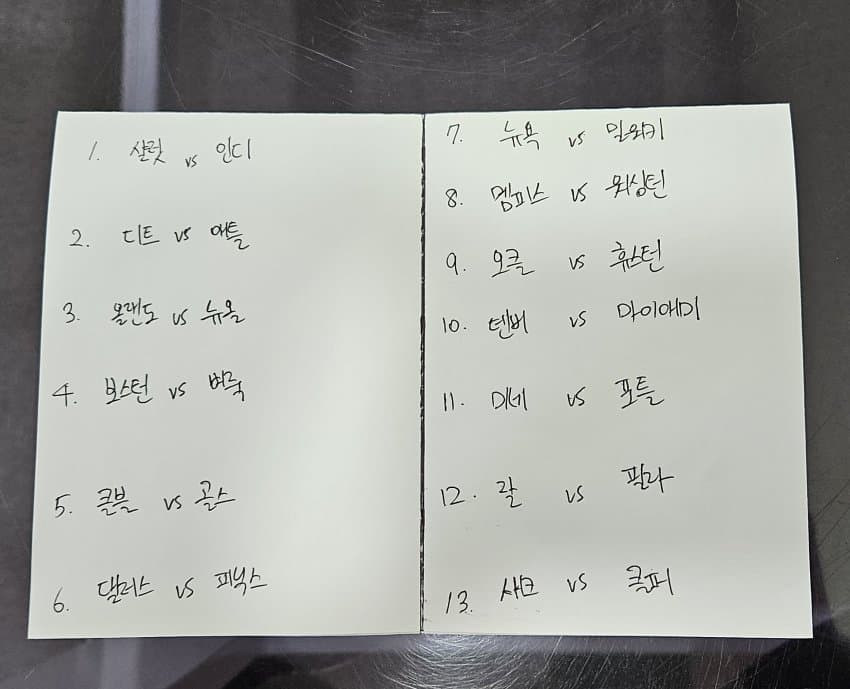 1. 샬럿 vs 인디
2. 디트 vs 애틀
3. 올랜도 vs 뉴올
4. 보스턴 vs 버룩
5. 클블 vs 골스
6. 댈러스 vs 피닉스
7. 뉴욕 vs 밀워키
8. 멤피스 vs 워싱턴
9. 오클 vs 휴스턴
10. 덴버 vs 마이애미
11. 미네 vs 포틀
12. 랄 vs 필라
13. 새크 vs 클퍼